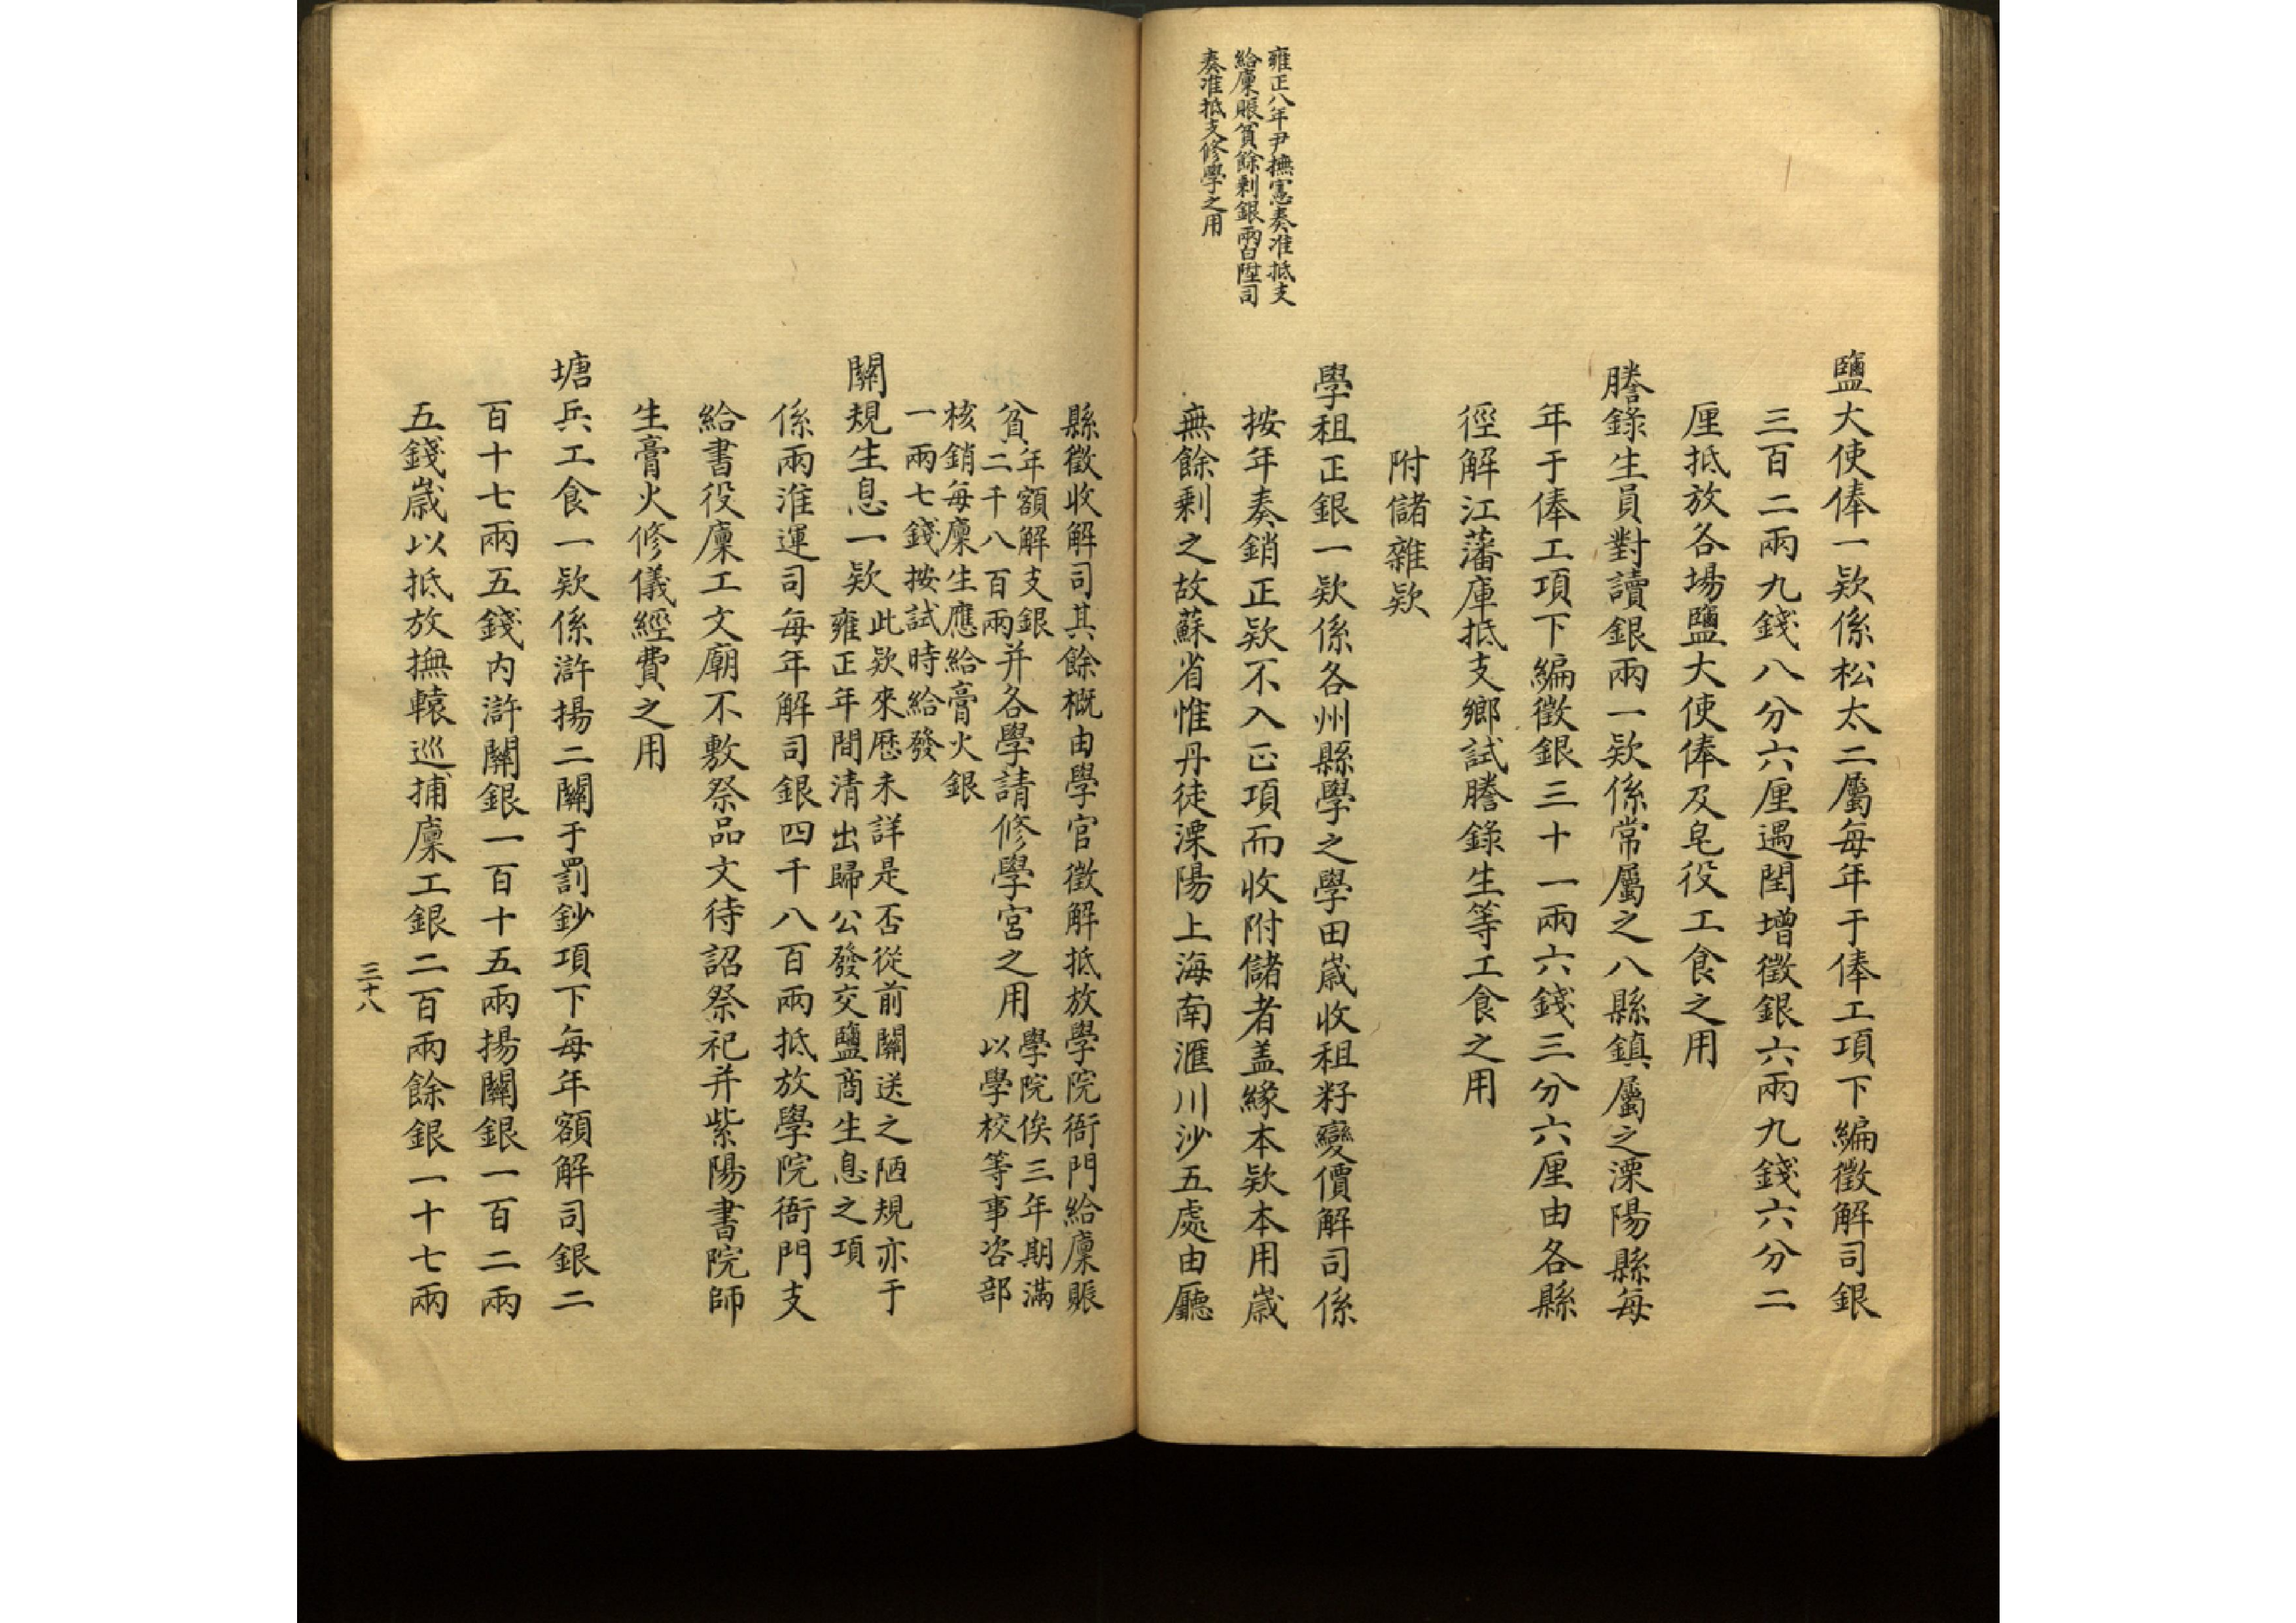 鹽大使俸一欵係松太二屬每年于俸工項下編徵解司銀
三百二兩九錢八分六厘遇閏增徵銀六兩九錢六分二
厘抵放各場鹽大使俸及皂役工食之用
謄錄生員對讀銀兩一欵係常屬之八縣鎮屬之溧陽縣每
年于俸工項下編徵銀三十一兩六錢三分六厘由各縣
徑解江藩庫抵支鄉試謄錄生等工食之用
附儲雜欵
雍正八年尹撫憲奏准抵支
給廩賬貧餘剩銀兩白陞司
奏准抵支修學之用
學租正銀一欵係各州縣學之學田歲收租籽變價解司係
按年奏銷正欵不入正項而收附儲者盖緣本欵本用歲
無餘剩之故蘇省惟丹徒溧陽上海南滙川沙五處由廳
縣徵收解司其餘概由學官徵解抵放學院衙門給廩賑
貧年額解支銀二千八百兩并各學請修學宮之用學院俟三年期滿以學校等事咨部
核銷每廩生應給膏火銀
一兩七錢按試時給發
關規生息一欵此欵來歷未詳是否從前關送之陋規亦于雍正年間清出歸公發交鹽商生息之項
係兩淮運司每年解司銀四千八百兩抵放學院衙門支
給書役廩工文廟不敷祭品文待詔祭祀并紫陽書院師
生膏火修儀經費之用
塘兵工食一欵係滸揚二關于罰鈔項下每年額解司銀二
百十七兩五錢内滸關銀一百十五兩揚關銀一百二兩
五錢歲以抵放撫轅巡捕廩工銀二百兩餘銀一十七兩
三十八